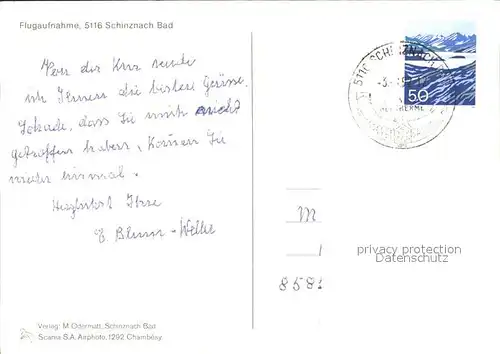 Flugaufnahme, 5116 Schinznach Bad
Von der Kur sende
ich Ihnen die besten Grüsse.
Schade, dass Sie mich nicht
getroffen haben, Kommen Sie
wieder einmal.
Herzlichst Ihre
E. Blum-Welti
5116 SCHINZNACH
50
THERME
M
858
privacy protection
Datenschutz
Verlag: M. Odermatt, Schinznach Bad
Scania S.A. Airphoto, 1292 Chambésy